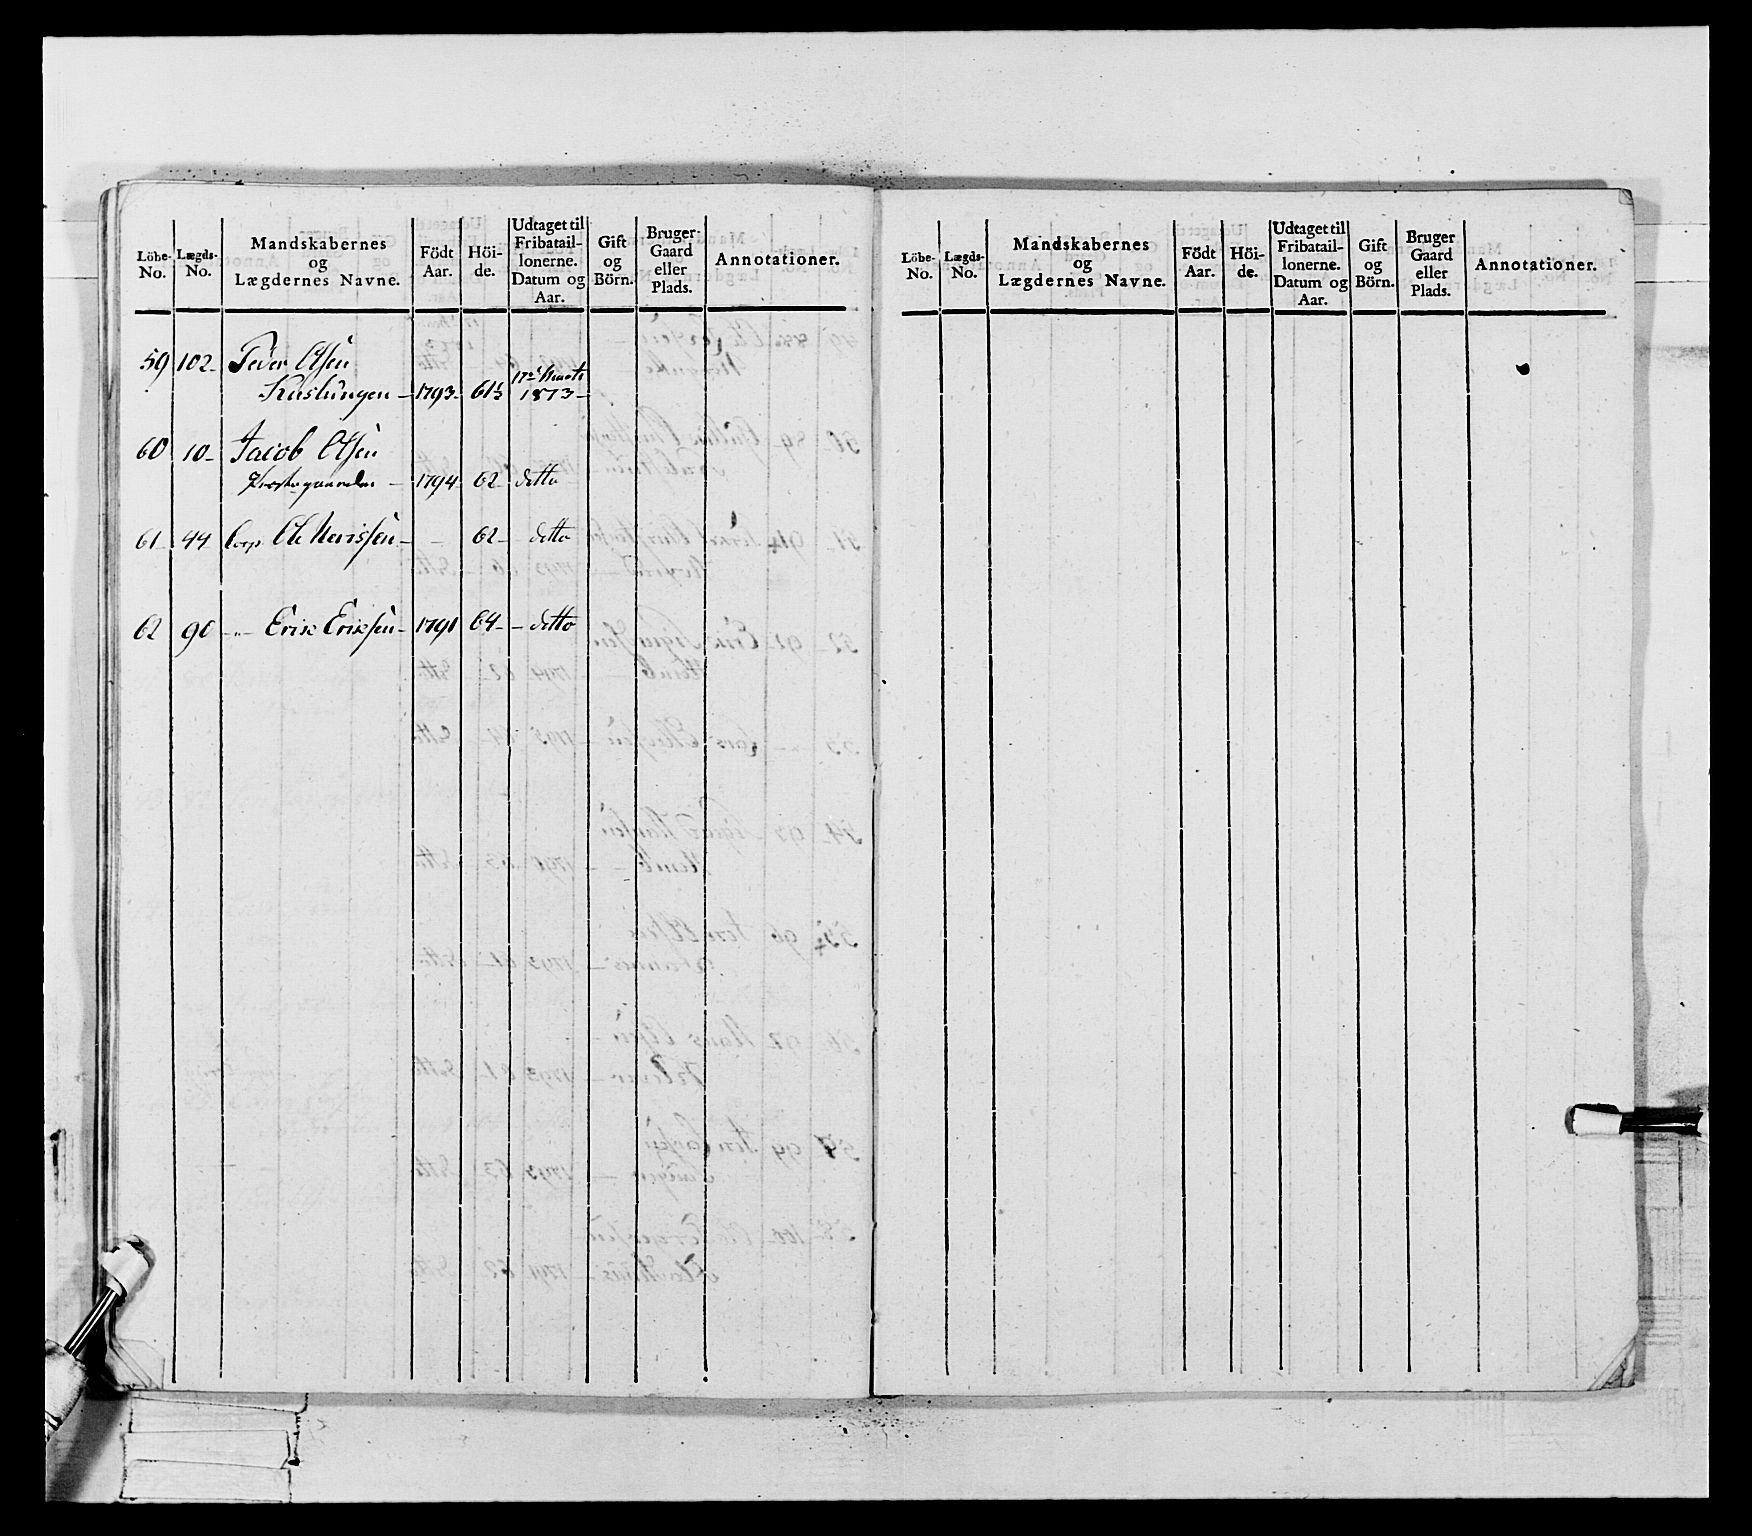 Löbe- No.
Lægds- No.
Mandskabernes og Lægdernes Navne.
Födt Aar.
Höi- de.
Udtaget til Fribatail- lonerne. Datum og Aar.
Gift og Börn.
Bruger- Gaard eller Plads.
Annotationer.
59 102 Peder Olsen
1793 61½ 1813
60 10 Jacob Olsen
1794 62 ditto
61 44 Corp. Ole 62 ditto
62 90 Erik Eriksen 1791 64 ditto
Löbe- No.
Lægds- No.
Mandskabernes og Lægdernes Navne.
Födt Aar.
Höi- de.
Udtaget til Fribatail- lonerne. Datum og Aar.
Gift og Börn.
Bruger Gaard eller Plads.
Annotationer.